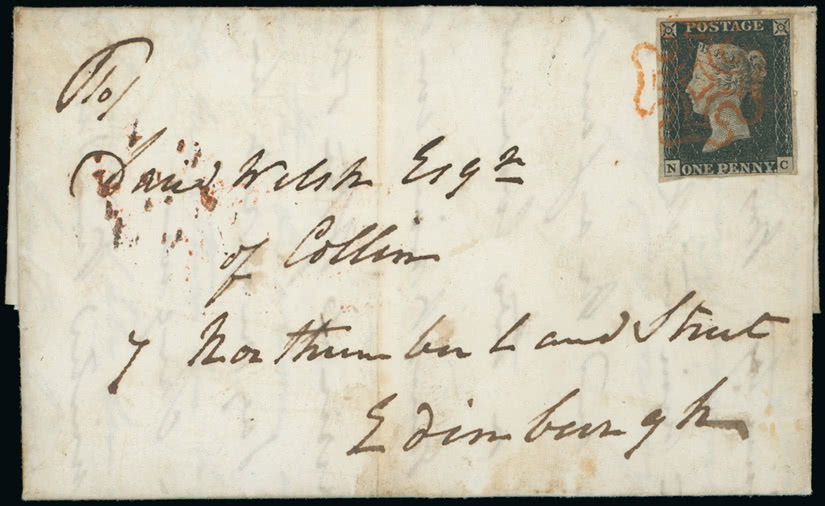 POSTAGE
N ONE PENNY C
To/
David Welsh Esqre
of Collin
7 Northumberland Street
Edinburgh